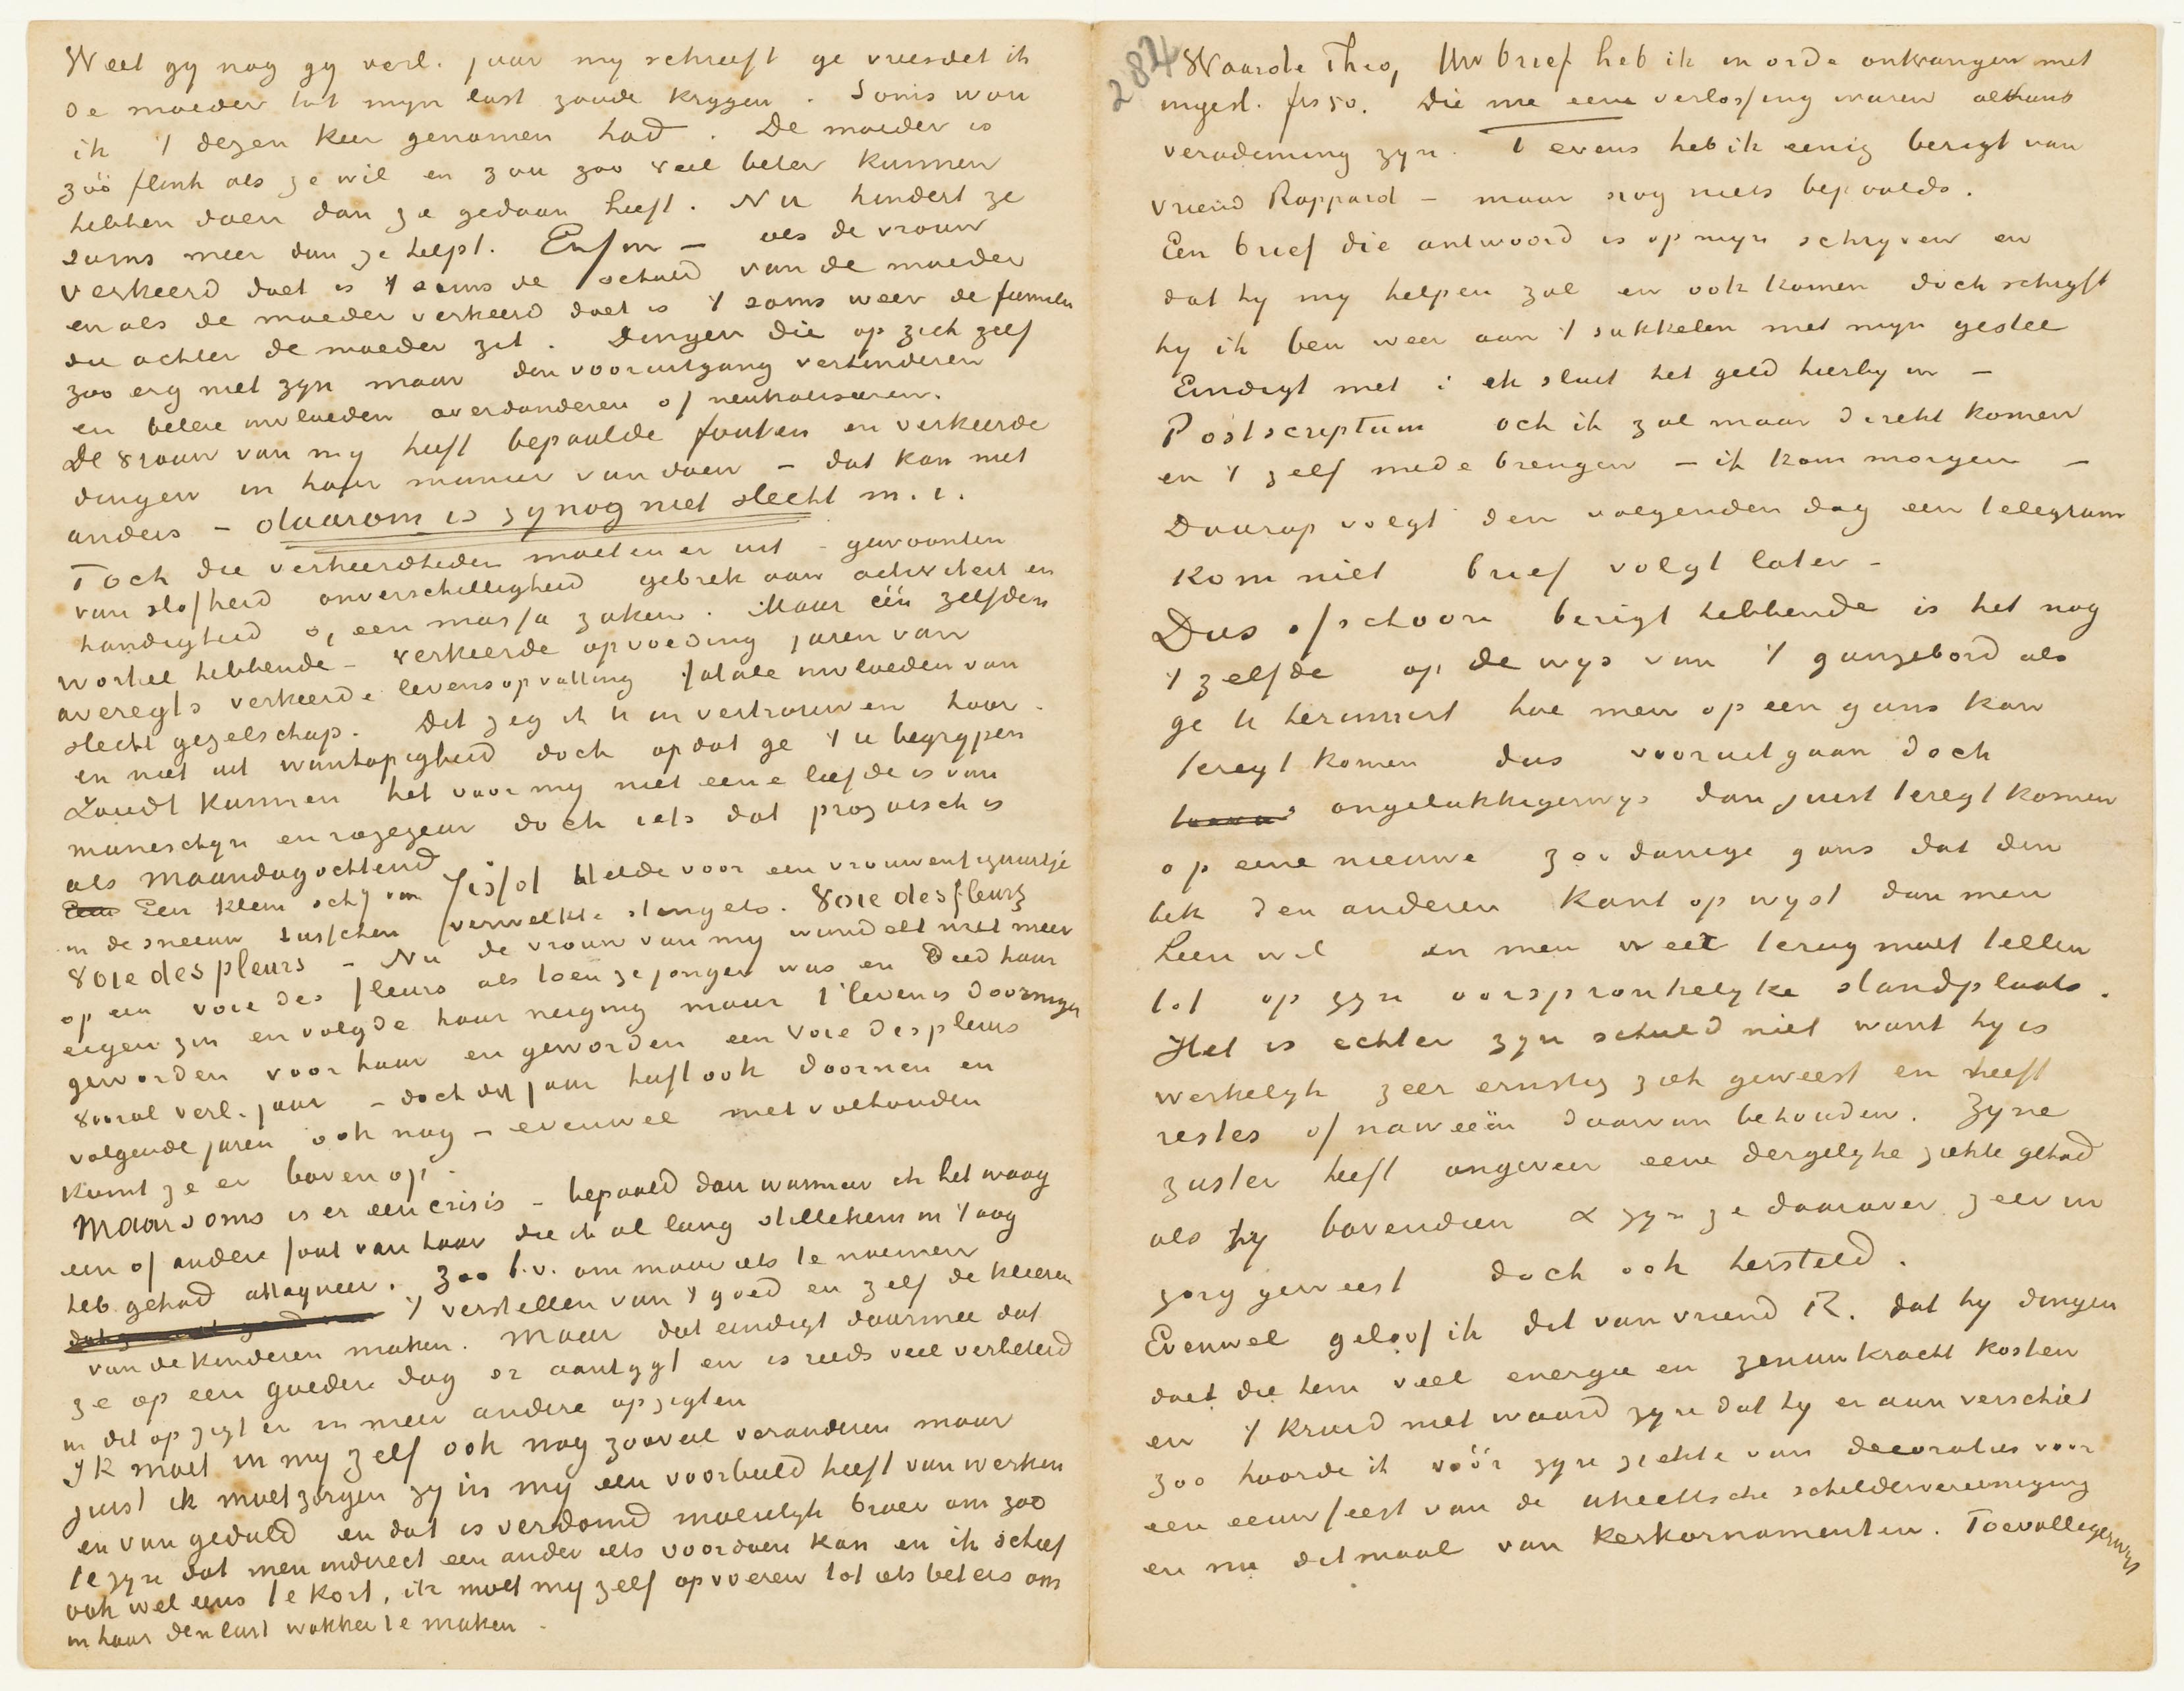 Weet gy nog gy verl. jaar my schreeft ge vreesdet ik
de moeder tot myn last zoude krygen. Soms wou
ik 't dezen keer genomen had. De moeder is
zóó flink als ze wil en zou zoo veel beter kunnen
hebben doen dan ze gedaan heeft. Nu hindert ze
soms meer dan ze helpt. Enfin – als de vrouw
verkeerd doet is 't soms de schuld van de moeder
en als de moeder verkeerd doet is 't soms weer de familie
die achter de moeder zit. Dingen die op zich zelf
zoo erg niet zyn maar den vooruitgang verhinderen
en betere invloeden overdonderen of neutraliseeren.
De vrouw van my heeft bepaalde fouten en verkeerde
dingen in haar manier van doen – dat kan niet
anders – daarom is zy nog niet slecht m. i.
Toch die verkeerdheden moeten er uit – gewoonten
van slofheid onverschilligheid gebrek aan activiteit en
handigheid o, een massa zaken. Maar één zelfden
wortel hebbende – verkeerde opvoeding jaren van
averegts verkeerde levensopvatting fatale invloeden van
slecht gezelschap. Dit zeg ik U in vertrouwen hoor –
en niet uit wanhopigheid doch opdat ge 't U begrypen
zoudt kunnen het voor my niet eene liefde is van
maneschyn en rozegeur doch iets dat prozaisch is
als maandagochtend
Een Een klein schy van Tissot stelde voor een vrouwenfiguurtje
in de sneeuw tusschen verwelkte stengels. Voie des fleurs
Voie des pleurs – Nu de vrouw van my wandelt niet meer
op een voie des fleurs als toen ze jonger was en deed haar
eigen zin en volgde haar neiging maar 't leven is doorniger
geworden voor haar en geworden een voie des pleurs
vooral verl. jaar – doch dit jaar heeft ook doornen en
volgende jaren ook nog – evenwel met volhouden
komt ze er boven op –
Maar soms is er een crisis – bepaald dan wanneer ik het waag
een of andere fout van haar die ik al lang stillekens in 't oog
heb gehad attaqueer. Zoo b.v. om maar iets te noemen
't verstellen van 't goed en zelf de kleeren
van de kinderen maken. Maar dat eindigt daarmee dat
ze op een goeden dag er aantygt en is reeds veel verbeterd
in dit opzigt en in meer andere opzigten
Ik moet in my zelf ook nog zooveel veranderen maar
juist ik moet zorgen zy in my een voorbeeld heeft van werken
en van geduld en dat is verdomd moeielyk broer om zoo
te zyn dat men indirect een ander iets voordoen kan en ik schiet
ook wel eens te kort, ik moet my zelf opvoeren tot iets beters om
in haar den lust wakker te maken –
2874
Waarde Theo, Uw brief heb ik in orde ontvangen met
ingesl. frs 50. Die me eene verlossing waren althans
verademing zyn. Tevens heb ik eenig berigt van
vriend Rappard – maar nog niets bepaalds.
Een brief die antwoord is op myn schryven en
dat hy my helpen zal en ook komen doch schryft
hy ik ben weer aan 't sukkelen met myn gestel
Eindigt met : ik sluit het geld hierby in –
Postscriptum och ik zal maar direkt komen
en 't zelf mede brengen – ik kom morgen –
Daarop volgt den volgenden dag een telegram
kom niet brief volgt later –
Dus ofschoon berigt hebbende is het nog
't zelfde op de wys van 't ganzebord als
ge U herinnert hoe men op een gans kan
teregt komen dus vooruitgaan doch
ongelukkigerwys dan juist teregt komen
op eene nieuwe zoodanige gans dat den
bek den anderen kant op wyst dan men
heen wil en men weer terug moet tellen
tot op zyn oorspronkelyke standplaats.
Het is echter zyn schuld niet want hy is
werkelyk zeer ernstig ziek geweest en heeft
restes of naweeën daarvan behouden. Zyne
zuster heeft ongeveer eene dergelyke ziekte gehad
als hy bovendien & zyn ze daarover zeer in
zorg geweest doch ook hersteld.
Evenwel geloof ik dit van vriend R. dat hy dingen
doet die hem veel energie en zenuwkracht kosten
en 't kruid niet waard zyn dat hy er aan verschiet
zoo hoorde ik vóór zyn ziekte van decoraties voor
een eeuwfeest van de utrechtsche schildervereeniging
en nu ditmaal van kerkornamenten. Toevalligerwys